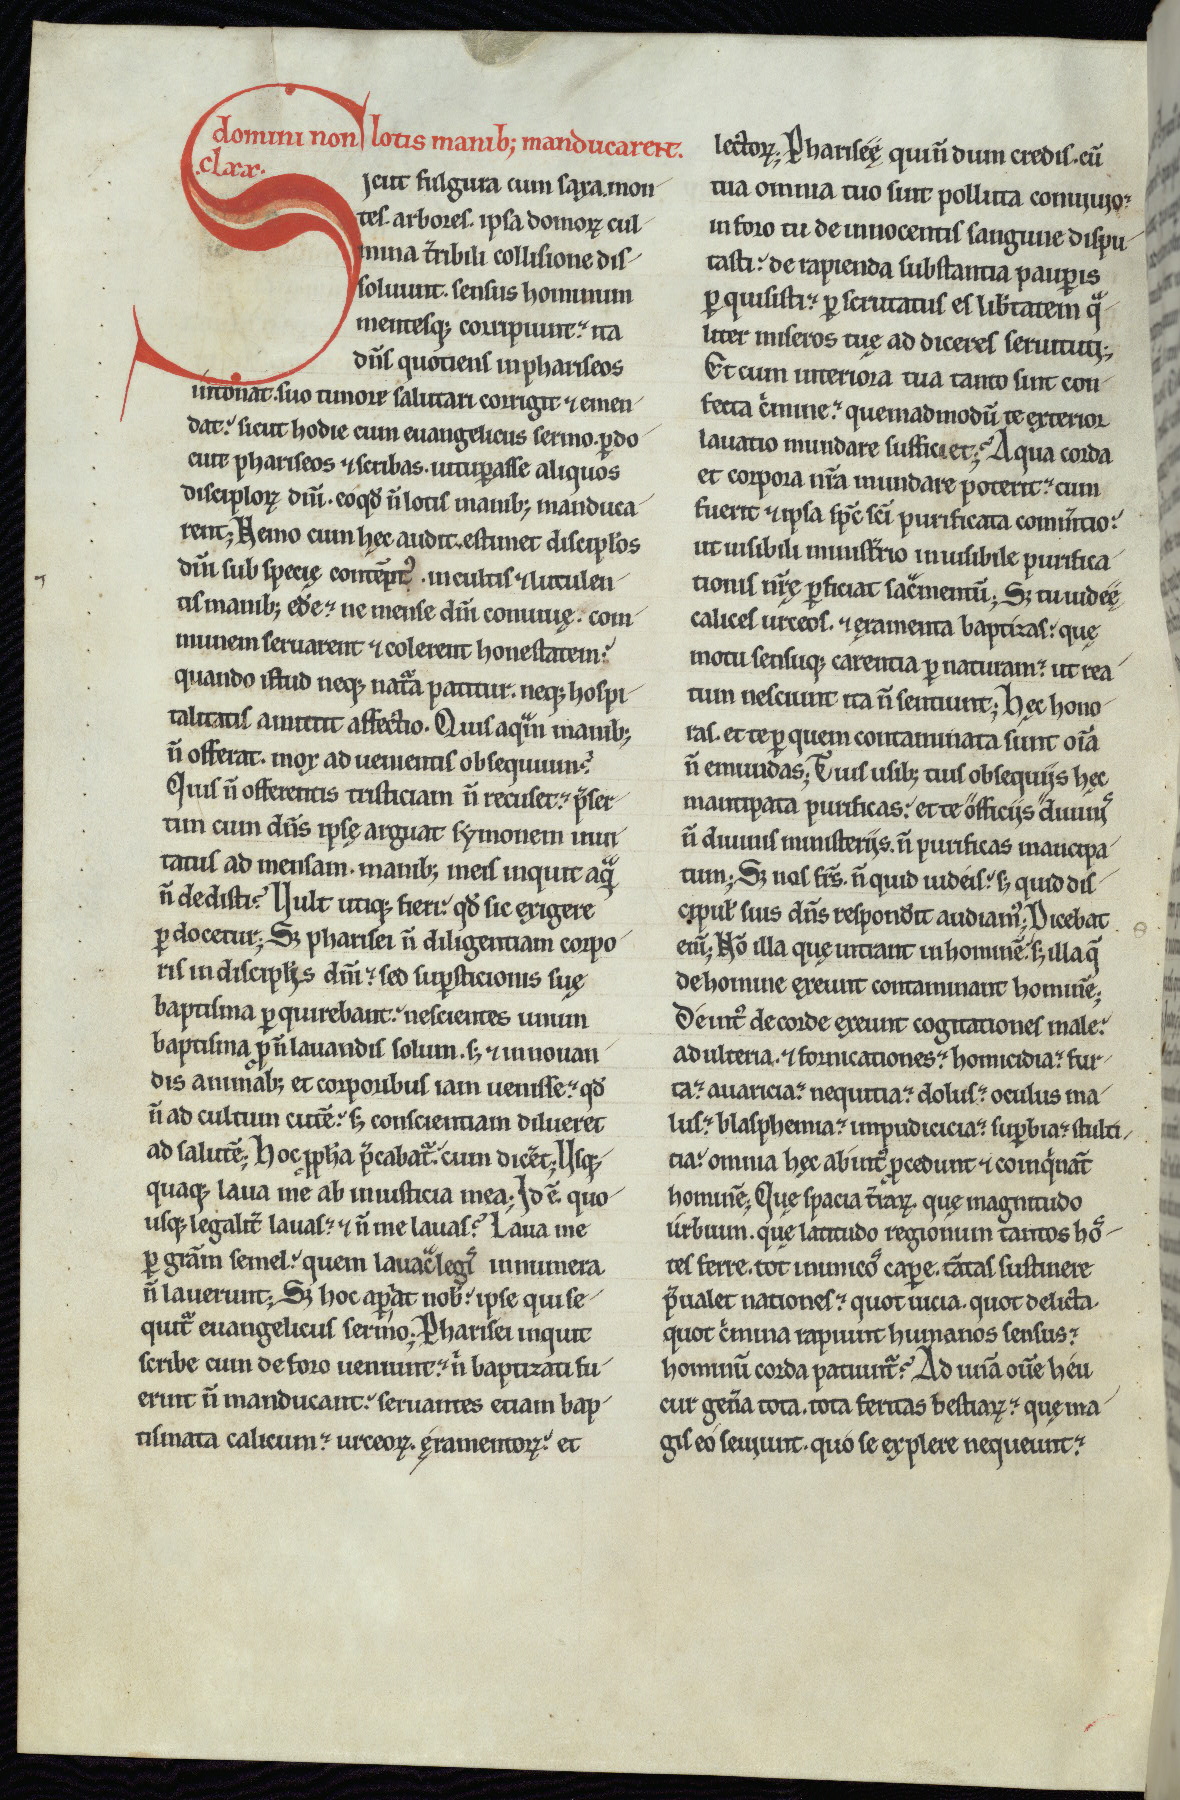 domini non lotis manib; manducarent.
.clxx.
Sicut fulgura cum saxa. mon
tes. arbores. ipsa domoꝝ cul
mina t̄ribili collisione dis
soluunt. sensus hominum
mentesq; corripiunt: ita
dn̄s quotiens in phariseos
intonat. suo timore salutari corrigit ⁊ emen
dat: sicut hodie cum euangelicus sermo. ꝑdo
cuit phariseos ⁊ scribas. uituꝑasse aliquos
disciploꝝ dn̄i. eo qđ n̄ lotis manib; manduca
rent; Nemo cum hęc audit. estimet discipłos
dn̄i sub specię contēpt᾿. incultis ⁊ lutulen
tis manib; eđe: ne mense dn̄i conuiuę. com
munem seruarent ⁊ colerent honestatem:
quando istud neq; nat̄a patitur. neq; hospi
talitatis amittit affectio. Quis aquā manib;
n̄ offerat. mox aduenientis obsequium?
Quis n̄ offerentis tristiciam n̄ recuset: p̄ser
tim cum dn̄s ipsę arguat symonem inui
tatus ad mensam. manib; meis inquit aquā
n̄ dedisti? Uult utiq; fieri: qđ sic exigere
ꝑdocetur; Sꝫ pharisei n̄ diligentiam corpo
ris in discipłis dn̄i: sed suꝑsticionis suę
baptisma ꝑquirebant: nescientes unum
baptisma ꝓ n̄ lauandis solum. sꝫ ⁊ innouan
dis animab; et corporibus iam uenisse: qđ
n̄ ad cultum cutē: sꝫ conscientiam dilueret
ad salutē; Hoc ꝓpha p̄cabat̄. cum dicēt; Usq;
quaq; laua me ab iniusticia mea; Id ē. quo
usq; legalit̄ lauas: ⁊ n̄ me lauas? Laua me
ꝑ grām semel: quem lauac̄ legis innumera
n̄ lauerunt; Sꝫ hoc aꝑđat nob̄: ipse qui se
quit̄ euangelicus sermo; Pharisei inquit
scribe cum de foro ueniunt: n̄ baptizati fu
erint n̄ manducant: seruantes etiam bap
tismata calicum: urceoꝝ. ęramentoꝝ: et
lectoꝝ; Phariseę qui n̄dum credis. cū
tua omnia tuo sint polluta conuiuio:
in foro tu de innocentis sanguine dispu
tasti: de rapienda substantia pauꝑis
ꝑquisisti: ꝑscrutatus es lib̄tatem q̄
liter miseros tuę addiceres seruituti;
Et cum interiora tua tanto sint con
fecta c̄mine: quemadmodū te exterior
lauatio mundare sufficiet; Aqua corda
et corpora nr̄a mundare poterit: cum
fuerit ⁊ ipsa sp̄c sc̄i purificata comm̄tio:
ut uisibili minist̄rio inuisibile purifica
tionis nr̄ę ꝑficiat sac̄mentū; Sꝫ tu iudęę
calices urceos. ⁊ ęramenta baptizas: quę
motu sensuq; carentia ꝑ naturam: ut rea
tum nesciunt ita n̄ sentiunt; Hęc hono
ras. et te ꝑ quem contaminata sunt oīa
n̄ emundas; Tuis usib; tuis obsequijs hęc
mantipata purificas: et te officijs diuinis
n̄ diuinis ministerijs. n̄ purificas mancipa
tum; Sꝫ nos fr̄s. n̄ quid iudeis: sꝫ quid dis
cipuł suis dn̄s respondit audiam᾿; Dicebat
enī; Nō illa quę intrant in hominē. sꝫ illa q̄
de homine exeunt contaminant hominē;
Deint᾿ de corde exeunt cogitationes male:
adulteria. ⁊ fornicationes: homicidia: fur
ta: auaricia: nequitia: dolus: oculus ma
lus: blasphemia: impudicicia: suꝑbia: stulti
tia: omnia hęc abint᾿ ꝓcedunt ⁊ coinq̄nāt
hominē; Quę spacia t̄raꝝ. quę magnitudo
urbium. quę latitudo regionum tantos hos
tes ferre. tot inimicos caꝑe. tātas sustinere
p̄ualet nationes: quot uicia. quot delicta.
quot c̄mina rapiunt humanos sensus:
hominū corda patiunt̄? Ad unā ouē heu
cur gen̄a tota. tota feritas bestiaꝝ: quę ma
gis eo seuiunt. quo se explere nequeunt: